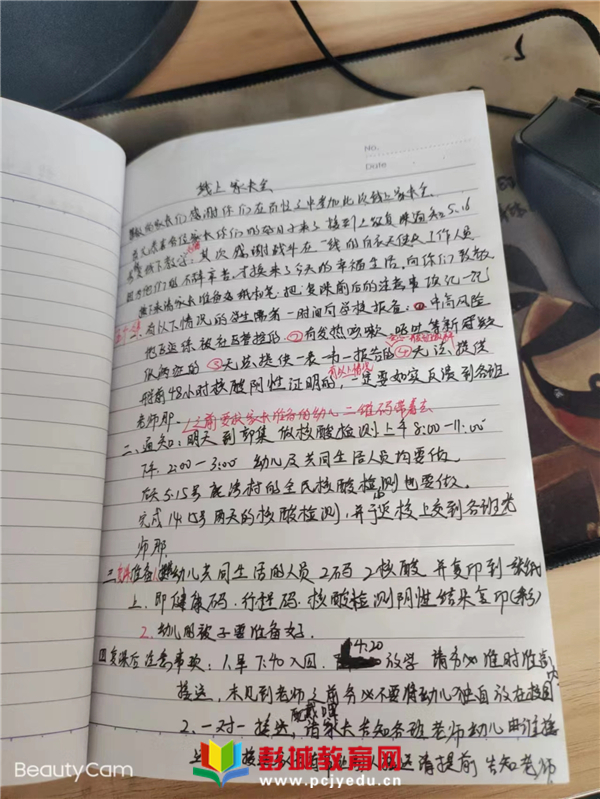 No.
Date
线上家长会
尊敬的家长们感谢你们在百忙之中参加此次线上家长会
5.16
线下教学。其次感谢战斗在一线的白衣天使及工作人员
是他们的不辞辛苦,才换来了今天的幸福生活,向你们致敬
接下来请家长准备好纸和笔,把复课前后的注意事项记一记
一、有以下情况的学生需第一时间向学校报备:①中高风险
地区返 被社区管控的②有发热咳嗽、呕吐等新冠疑
似病症的③无法提供一表一书一报告的④无法提供
班前48小时核酸阴性证明的,有以上情况一定要如实反馈到各班
老师那。
二、通知:明天到郭集做核酸检测上午8:00-11:00
下午2:00-3:00 幼儿及共同生活人员均要做
后天5.15号 湾村的全民核酸检测也要做。
完成14.15号两天的核酸检测,并于返校上交到各班老
师那
三、 准备1.幼儿共同生活的人员2码2核酸 并复印到一张纸
上,即健康码.行程码.核酸检测阴性结果复印(彩)
2.幼儿园被子要准备好.
四复课后注意事项:1.早7:40入园. 4:20放学 请务必准时准点
接送,未见到老师之前务必不要将幼儿独自放在校园内
2、一对一接送,配戴口罩 请家长告知各班老师幼儿由谁接
送 接送 请提前告知老师
彭城教育网
www.pcjyedu.cn
BeautyCam